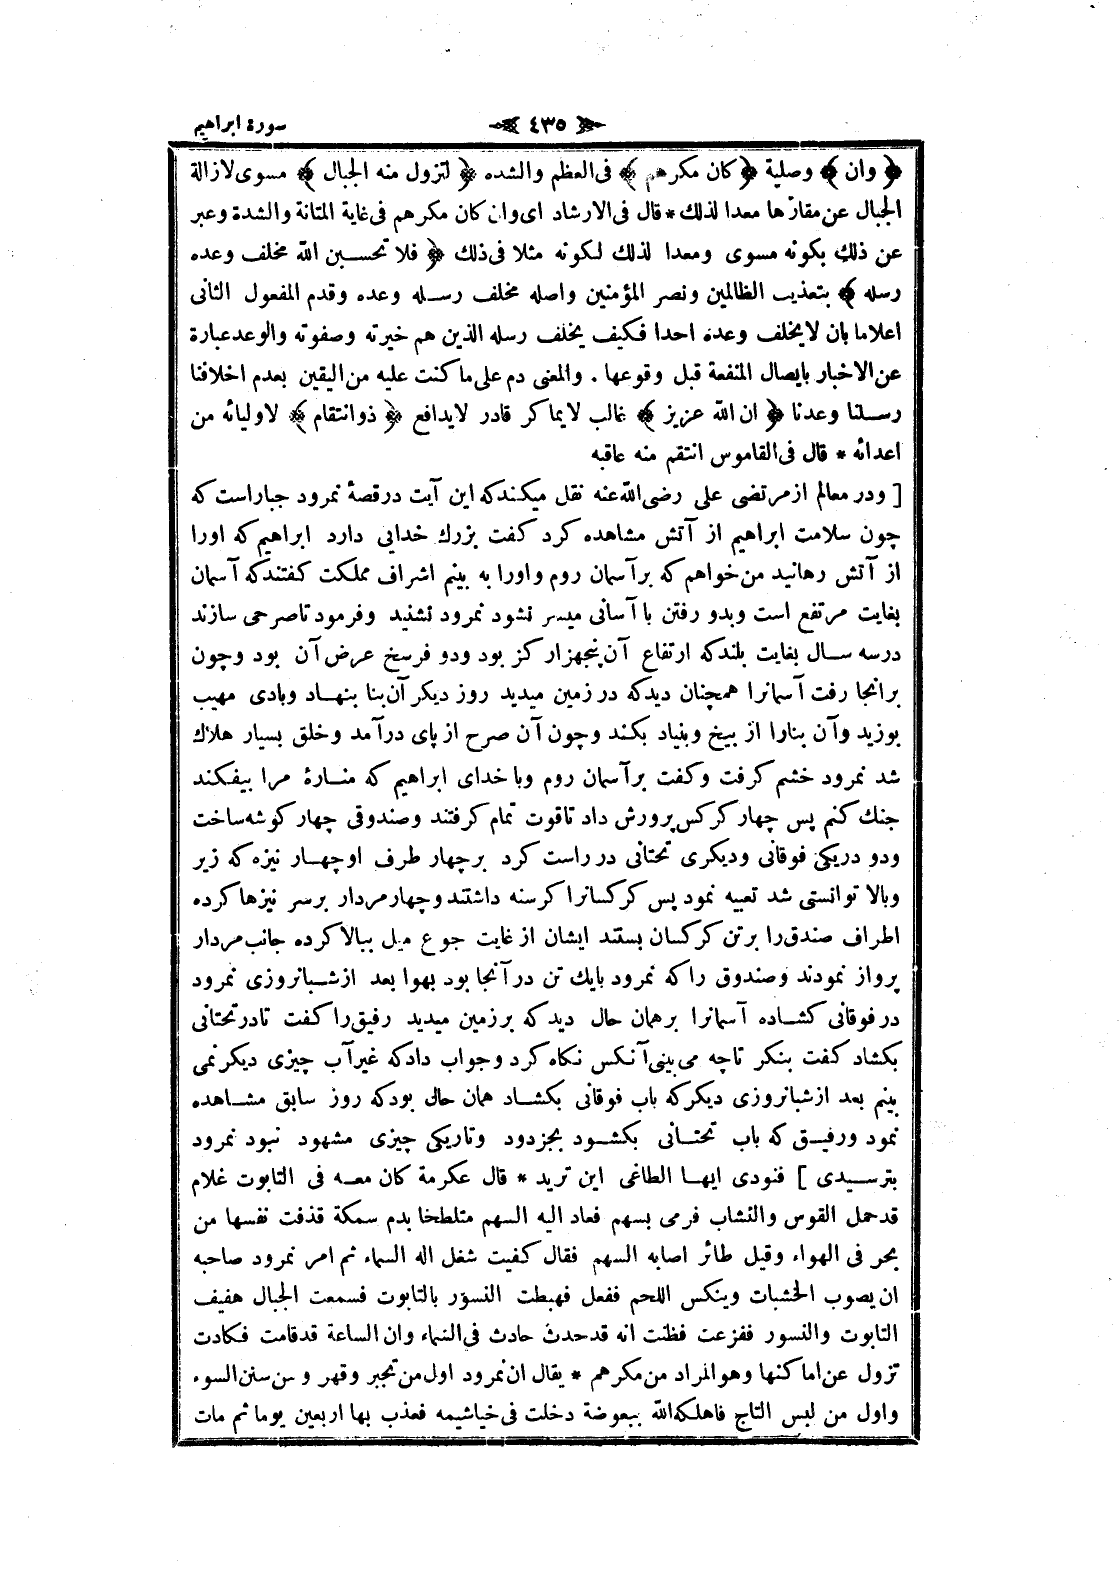 سورة ابراهيم
﴿ ٤٣٥ ﴾
﴿ وان ﴾ وصلية ﴿ كان مكرهم ﴾ فى العظم والشده ﴿ لتزول منه الجبال ﴾ مسوى لازالة
الجبال عن مقارّها معدا لذلك * قال فى الارشاد اى وان كان مكرهم فى غاية المتانة والشدة وعبر
عن ذلك بكونه مسوى ومعدا لذلك لكونه مثلا فى ذلك ﴿ فلا تحسبن الله مخلف وعده
رسله ﴾ بتعذيب الظالمين ونصر المؤمنين واصله مخلف رسله وعده وقدم المفعول الثانى
اعلاما بان لايخلف وعده احدا فكيف يخلف رسله الذين هم خيرته وصفوته والوعد عبارة
عن الاخبار بايصال المنفعة قبل وقوعها . والمعنى دم على ماكنت عليه من اليقين بعدم اخلافنا
رسلنا وعدنا ﴿ ان الله عزيز ﴾ غالب لايماكر قادر لايدافع ﴿ ذوانتقام ﴾ لاوليائه من
اعدائه * قال فى القاموس انتقم منه عاقبه
[ ودر معالم ازمرتضى على رضى الله عنه نقل ميكندكه اين آيت درقصهٔ نمرود جباراست كه
چون سلامت ابراهيم از آتش مشاهده كرد كفت بزرك خدايى دارد ابراهيم كه اورا
از آتش رهانيد من خواهم كه برآسمان روم واورا به بينم اشراف مملكت كفتندكه آسمان
بغايت مرتفع است وبدو رفتن بآسانى ميسر نشود نمرود نشنيد وفرمود تاصرحى سازند
درسه سال بغايت بلندكه ارتفاع آن پنجهزار كز بود ودو فرسخ عرض آن بود وچون
برانجا رفت آسمانرا همچنان ديدكه در زمين ميديد روز ديكر آن بنا بنهاد وبادى مهيب
بوزيد وآن بنارا از بيخ وبنياد بكند وچون آن صرح ازپاى درآمد وخلق بسيار هلاك
شد نمرود خشم كرفت وكفت برآسمان روم وبا خداى ابراهيم كه منارهٔ مرا بيفكند
جنك كنم پس چهار كركس پرورش داد تاقوت تمام كرفتند وصندوقى چهار كوشه ساخت
ودو دريكى فوقانى وديكرى تحتانى در راست كرد برچهار طرف اوچهار نيزه كه زير
وبالا توانستى شد تعبيه نمود پس كركسانرا كرسنه داشتند وچهار مردار برسر نيزها كرده
اطراف صندق را برتن كركسان بستند ايشان از غايت جوع ميل ببالا كرده جانب مردار
پرواز نمودند وصندوق را كه نمرود بايك تن در آنجا بود بهوا بعد ازشبانروزى نمرود
درفوقانى كشاده آسمانرا برهمان حال ديد كه برزمين ميديد رفيق را كفت تادرتحتانى
بكشاد كفت بنكر تاچه مى بينى آنكس نكاه كرد وجواب دادكه غيرآب چيزى ديكر نمى
بينم بعد ازشبانروزى ديكركه باب فوقانى بكشاد همان حال بودكه روز سابق مشاهده
نمود ورفيق كه باب تحتانى بكشود بجزدود وتاريكى چيزى مشهود نبود نمرود
بترسيدى ] فنودى ايها الطاغى اين تريد * قال عكرمة كان معه فى التابوت غلام
قدحمل القوس والنشاب فرمى بسهم فعاد اليه السهم متلطخا بدم سمكة قذفت نفسها من
بحر فى الهواء وقيل طائر اصابه السهم فقال كفيت شغل اله السماء ثم امر نمرود صاحبه
ان يصوب الخشبات وينكس اللحم ففعل فهبطت النسور بالتابوت فسمعت الجبال هفيف
التابوت والنسور ففزعت فظنت انه قدحدث حادث فى السماء وان الساعة قدقامت فكادت
تزول عن اماكنها وهوالمراد من مكرهم * يقال ان نمرود اول من تجبر وقهر وسن سنن السوء
واول من لبس التاج فاهلكه الله ببعوضة دخلت فى خياشيمه فعذب بها اربعين يوما ثم مات